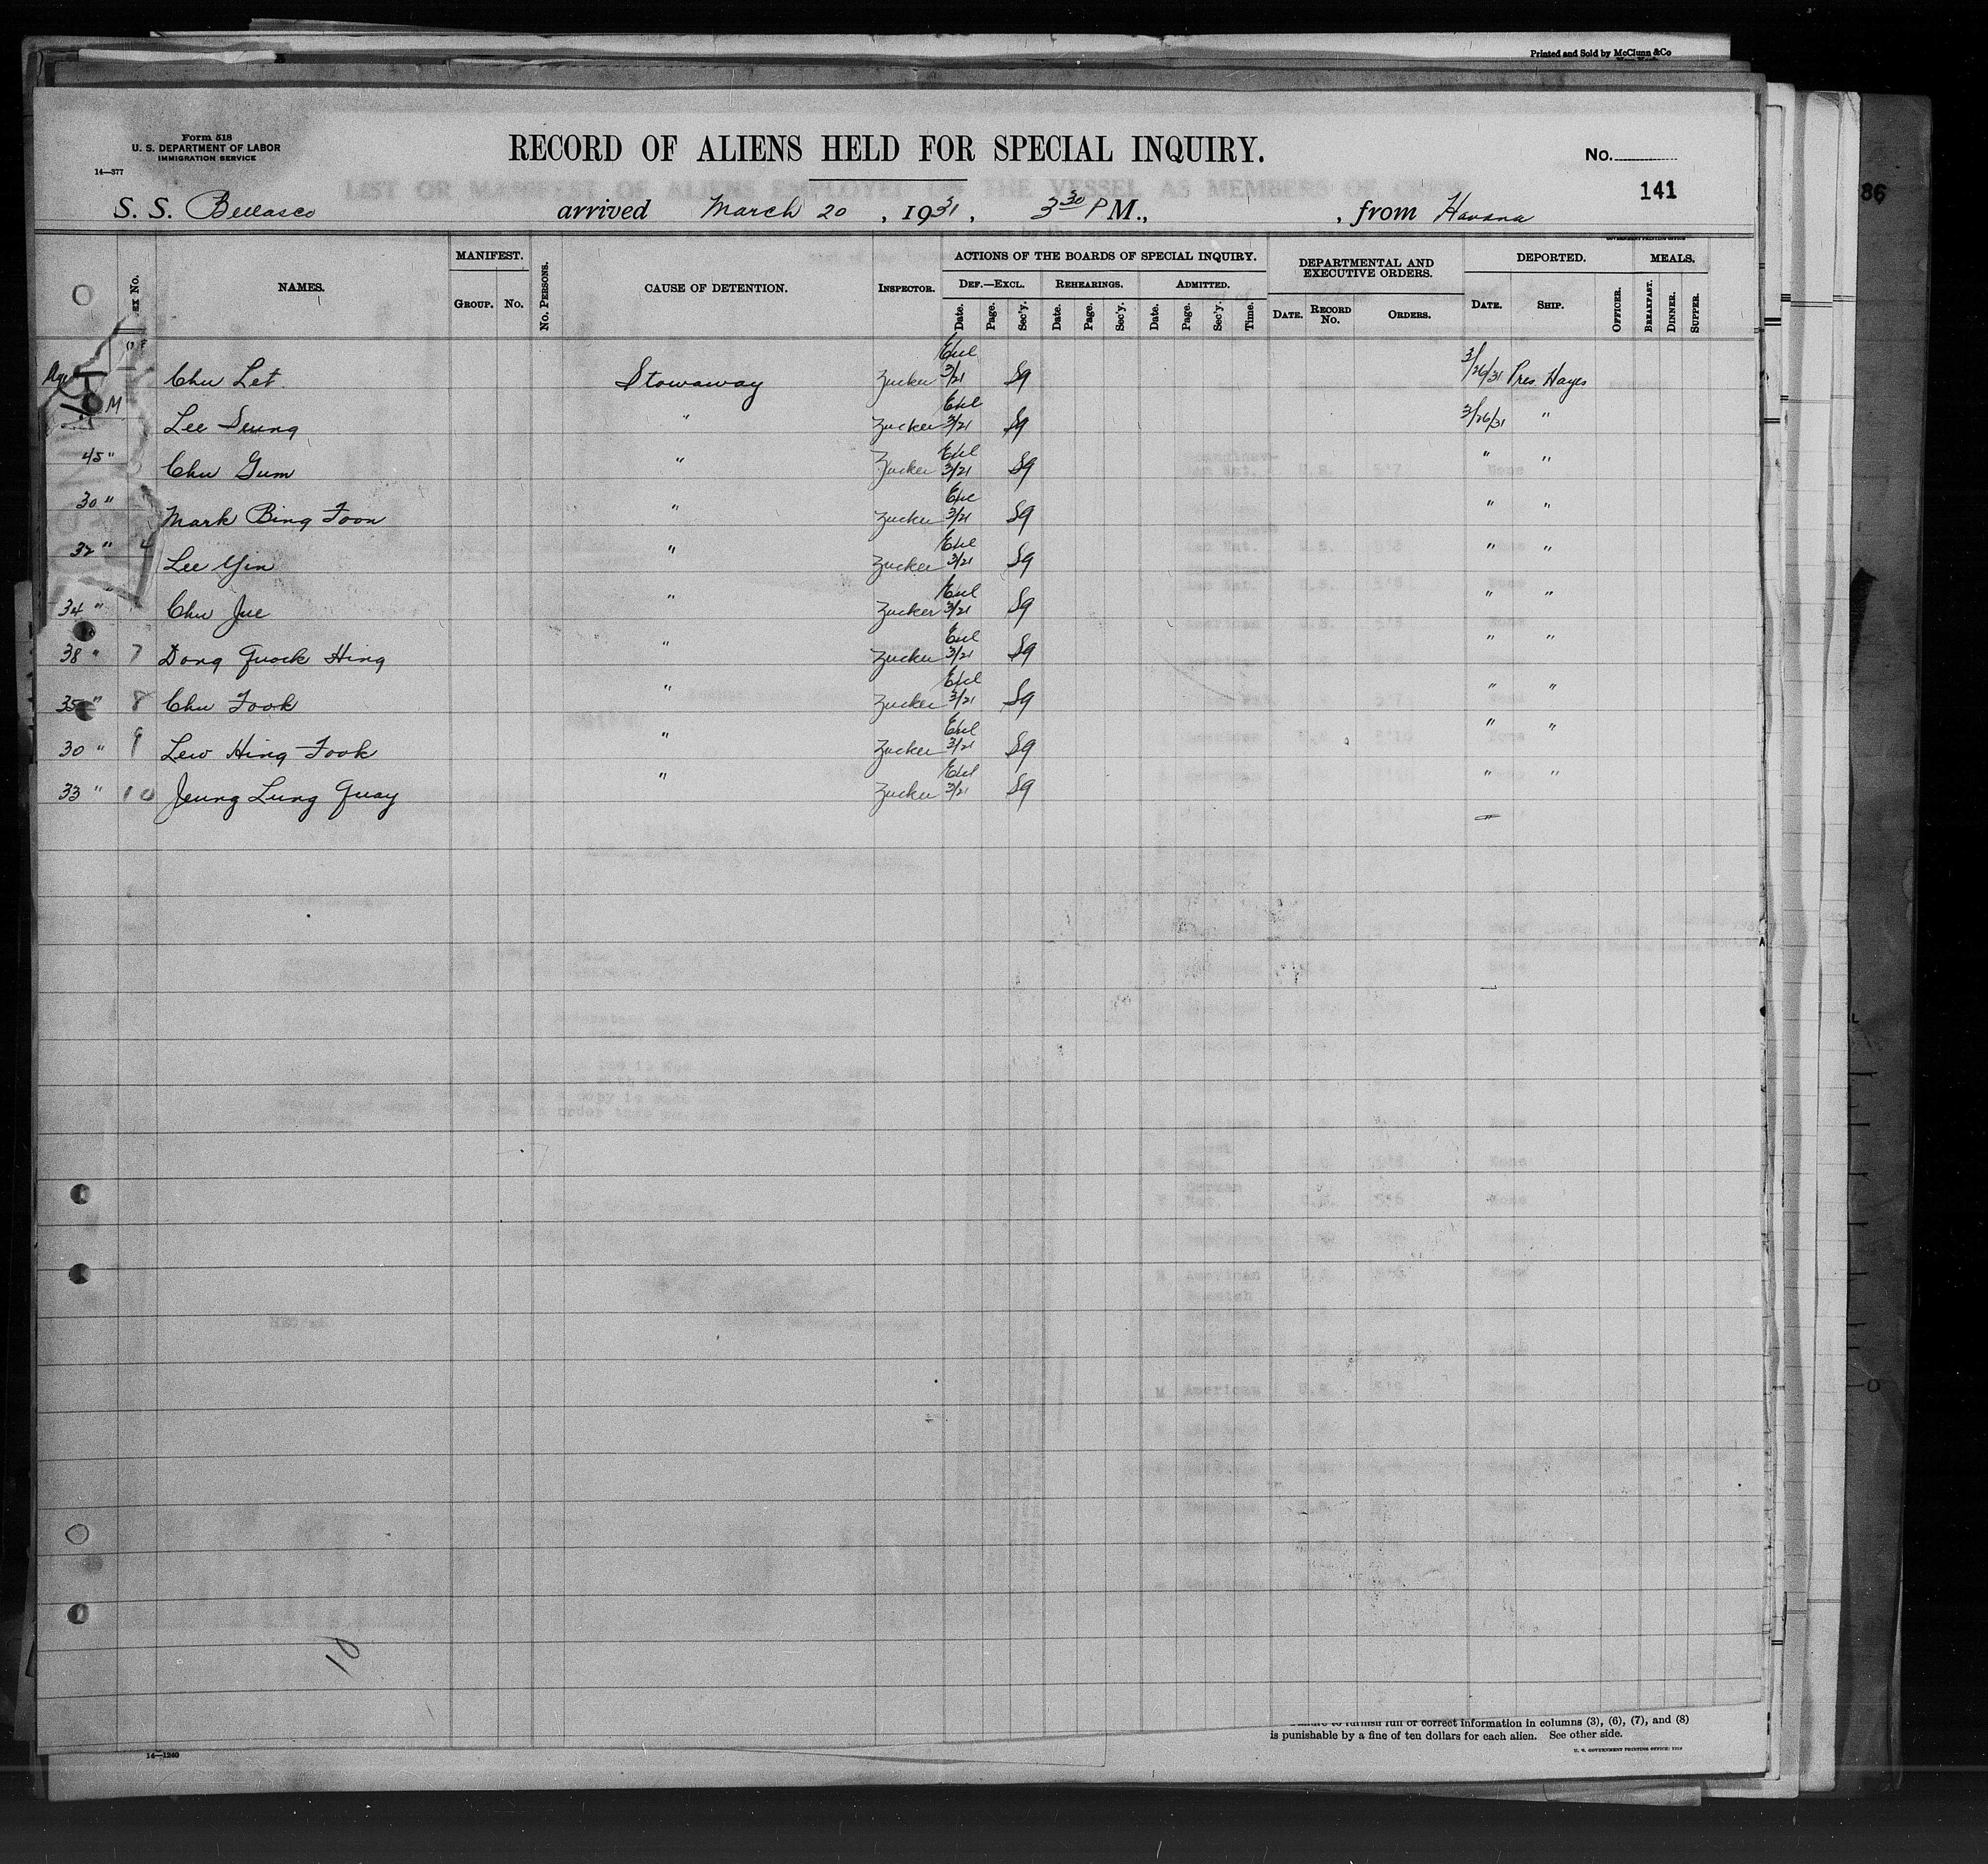 Printed and Sold by McClunn & Co
Form 518
U. S. DEPARTMENT OF LABOR
IMMIGRATION SERVICE
14—377
RECORD OF ALIENS HELD FOR SPECIAL INQUIRY.
No.
141
86
LIST OR MANIFEST OF ALIENS EMPLOYED ON THE VESSEL AS MEMBERS OF CREW
S. S. Bellasco arrived March 20, 1931, 3 30 P M., , from Havana
MANIFEST. ACTIONS OF THE BOARDS OF SPECIAL INQUIRY. DEPARTMENTAL AND EXECUTIVE ORDERS. DEPORTED. MEALS.
NAMES. GROUP. No. No. PERSONS. CAUSE OF DETENTION. INSPECTOR. DEF.—EXCL. REHEARINGS. ADMITTED.
Date. Page. Sec'y. Date. Page. Sec'y. Date. Page. Sec'y. Time. DATE. RECORD No. ORDERS. DATE. SHIP. OFFICER. BREAKFAST. DINNER. SUPPER.
Chu Let Stowaway Zucker Exl 3/21 Sg 3/26/31 Pres Hayes
M Lee Seung " Zucker Exl 3/21 Sg 3/26/31 "
45 " Chu Gum " Zucker Exl 3/21 Sg " "
30 " Mark Bing Foon " Zucker Exl 3/21 Sg " "
32 " Lee Yin " Zucker Exl 3/21 Sg " "
34 " Chu Jue " Zucker Exl 3/21 Sg " "
38 " 7 Dong Quock Hing " Zucker Exl 3/21 Sg " "
35 " 8 Chu Fook " Zucker Exl 3/21 Sg " "
30 " 9 Lew Hing Fook " Zucker Exl 3/21 Sg " "
33 " 10 Jeung Lung Quay " Zucker Exl 3/21 Sg " "
10
furnish full or correct information in columns (3), (6), (7), and (8)
is punishable by a fine of ten dollars for each alien. See other side.
14—1240
U. S. GOVERNMENT PRINTING OFFICE